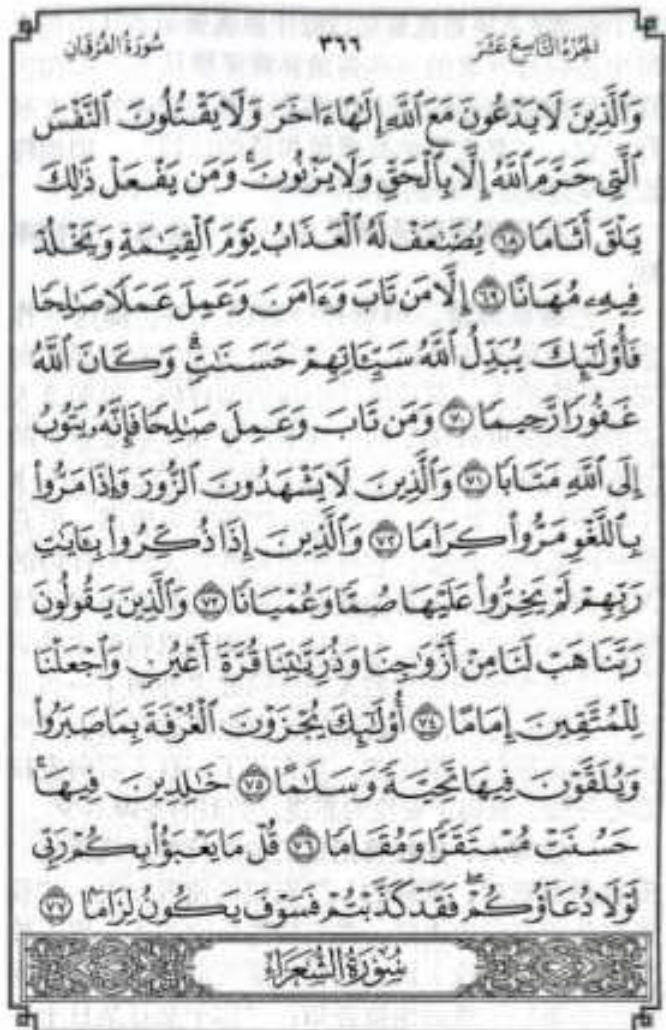 الجزء التاسع عشر ٣٦٦ سورة الفرقان
وَٱلَّذِينَ لَا يَدْعُونَ مَعَ ٱللَّهِ إِلَٰهًا ءَاخَرَ وَلَا يَقْتُلُونَ ٱلنَّفْسَ
ٱلَّتِى حَرَّمَ ٱللَّهُ إِلَّا بِٱلْحَقِّ وَلَا يَزْنُونَ ۚ وَمَن يَفْعَلْ ذَٰلِكَ
يَلْقَ أَثَامًا ٦٨ يُضَٰعَفْ لَهُ ٱلْعَذَابُ يَوْمَ ٱلْقِيَٰمَةِ وَيَخْلُدْ
فِيهِۦ مُهَانًا ٦٩ إِلَّا مَن تَابَ وَءَامَنَ وَعَمِلَ عَمَلًا صَٰلِحًا
فَأُو۟لَٰٓئِكَ يُبَدِّلُ ٱللَّهُ سَيِّـَٔاتِهِمْ حَسَنَٰتٍ ۗ وَكَانَ ٱللَّهُ
غَفُورًا رَّحِيمًا ٧٠ وَمَن تَابَ وَعَمِلَ صَٰلِحًا فَإِنَّهُۥ يَتُوبُ
إِلَى ٱللَّهِ مَتَابًا ٧١ وَٱلَّذِينَ لَا يَشْهَدُونَ ٱلزُّورَ وَإِذَا مَرُّوا۟
بِٱللَّغْوِ مَرُّوا۟ كِرَامًا ٧٢ وَٱلَّذِينَ إِذَا ذُكِّرُوا۟ بِـَٔايَٰتِ
رَبِّهِمْ لَمْ يَخِرُّوا۟ عَلَيْهَا صُمًّا وَعُمْيَانًا ٧٣ وَٱلَّذِينَ يَقُولُونَ
رَبَّنَا هَبْ لَنَا مِنْ أَزْوَٰجِنَا وَذُرِّيَّٰتِنَا قُرَّةَ أَعْيُنٍ وَٱجْعَلْنَا
لِلْمُتَّقِينَ إِمَامًا ٧٤ أُو۟لَٰٓئِكَ يُجْزَوْنَ ٱلْغُرْفَةَ بِمَا صَبَرُوا۟
وَيُلَقَّوْنَ فِيهَا تَحِيَّةً وَسَلَٰمًا ٧٥ خَٰلِدِينَ فِيهَا ۚ
حَسُنَتْ مُسْتَقَرًّا وَمُقَامًا ٧٦ قُلْ مَا يَعْبَؤُا۟ بِكُمْ رَبِّى
لَوْلَا دُعَآؤُكُمْ ۖ فَقَدْ كَذَّبْتُمْ فَسَوْفَ يَكُونُ لِزَامًۢا ٧٧
سُورَةُ الشُّعَرَاءِ